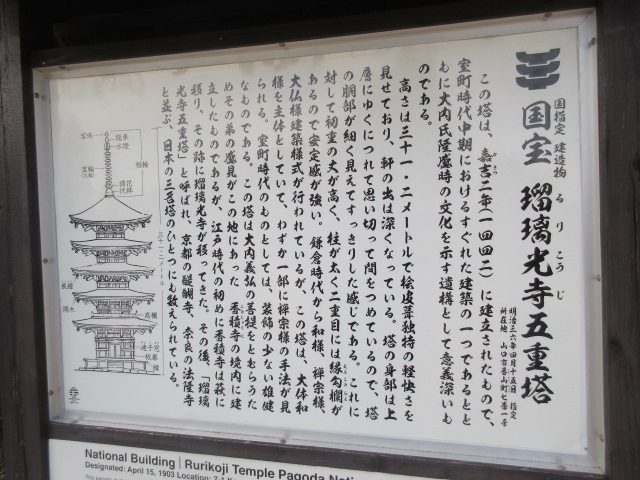 国指定 建造物
国宝 瑠璃光寺五重塔
るりこうじ
明治三六年四月十五日 指定
所在地 山口市香山町七番一号
この塔は、嘉吉二年(一四四二)に建立されたもので、
室町時代中期におけるすぐれた建築の一つであるとと
もに大内氏隆盛時の文化を示す遺構として意義深いも
のである。
高さは三十一・二メートルで桧皮葺独特の軽快さを
見せており、軒の出は深くなっている。塔の身部は上
層にゆくにつれて思い切って間をつめているので、塔
の胴部が細く見えてすっきりした感じである。これに
対して初重の丈が高く、柱が太く二重目には縁勾欄が
あるので安定感が強い。鎌倉時代から和様、禅宗様、
大仏様建築様式が行われているが、この塔は、大体和
様を主体としていて、わずか一部に禅宗様の手法が見
られる。室町時代のものとしては、装飾の少ない雄健
なものである。この塔は大内義弘の菩提をとむらうた
めその弟の盛見がこの地にあった 香積寺の境内に建
立したものであるが、江戸時代の初めに香積寺は萩に
移り、その跡に瑠璃光寺が移ってきた。その後、「瑠璃
光寺五重塔」と呼ばれ、京都の醍醐寺、奈良の法隆寺
と並ぶ、日本の三名塔のひとつにも数えられている。
宝珠
竜車
水煙
宝輪
相輪
請花
伏鉢
三十一・二メートル
風鐸
隅木
高欄
連子窓
板扉
縁
National Building | Rurikoji Temple Pagoda
Designated: April 15, 1903 Location: 7-1